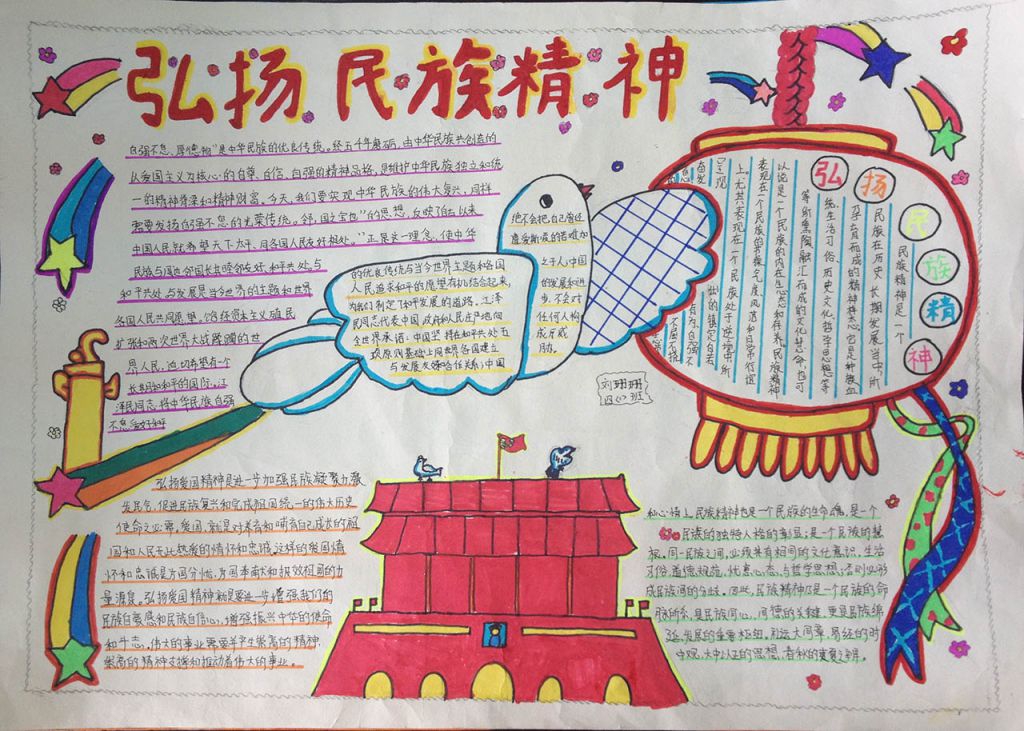 弘扬民族精神
自强不息,厚德物"是中华民族的优良传统。经五千年磨砺,由中华民族共创造的
以爱国主义为核心的自尊、自信、自强的精神品格,是维护中华民族独立和统
一的精神脊梁和精神财富。今天,我们要实现中华民族的伟大复兴,同样
需要发扬自强不息的光荣传统。邻,国之宝也"的思想,反映了自古以来
中国人民就希望天下太平、同各国人民友好相处。"正是这一理念,使中华
民族与周边邻国长期睦邻友好,和平共处,与
和平共处与发展是当今世界的主题和世界
各国人民共同愿望,饱经资本主义殖民
扩张和两次世界大战蹂躏的世
界人民,迫切希望有个
长期的和平的国际。江
泽民同志,将中华民族自强
不息
的优良传统与当今世界主题和各国
人民追求和平的愿望有机结合起来,
为我们制定了和平发展的道路。江泽
民同志代表中国政府和人民庄严地向
全世界承诺:中国坚持在和平共处五
项原则基础上同世界各国建立
与发展友好合作关系;中国
绝不会把自己曾经
遭受欺凌的苦难加
之于人;中国
的发展和进
步,不会对
任何人构
成牙威
胁。
弘扬民族精神
民族精神是一个
民族在历史长期发展当中,所
孕育而成的精神样态。它是种族血
统、生活习俗、历史文化、哲学思想等
等所熏陶、融汇而成的文化慧命,也可
以说是一个民族的内在心态和存养。民族精神
表现在一个民族的节操、气度、风范和日常行谊
上。尤其表现在一个民族处于逆境中,所
呈现
刘珊珊
四(2)班
弘扬爱国精神是进一步加强民族凝聚力、激
发民气、促进民族复兴和完成祖国统一的伟大历史
使命之必要。爱国,就是对养育和哺育自己成长的祖
国和人民无比热爱的情怀和忠诚,这样的爱国情
怀和忠诚是为国分忧、为国奉献和报效祖国的力
量源泉。弘扬爱国精神就是要进一步增强我们的
民族自尊感和民族自信心,增强振兴中华的使命
和斗志。伟大的事业需要并产生崇高的精神,
崇高的精神支撑和推动着伟大的事业。
和心情上,民族精神也是一个民族的生命魂,是一个
民族的独特人格的彰显;是一个民族的慧
根。同一民族之间,必须具有相同的文化意识、生活
习俗、道德规范、忧患心态、与哲学思想,否则必形
成民族间的分歧。因此,民族精神乃是一个民族的命
脉所系,是民族同心、同德的关键,更是民族绵
延、发展的重要枢纽。礼运大同章,易经的时
中观,大中以正的思想,春秋的夷夏之辨。